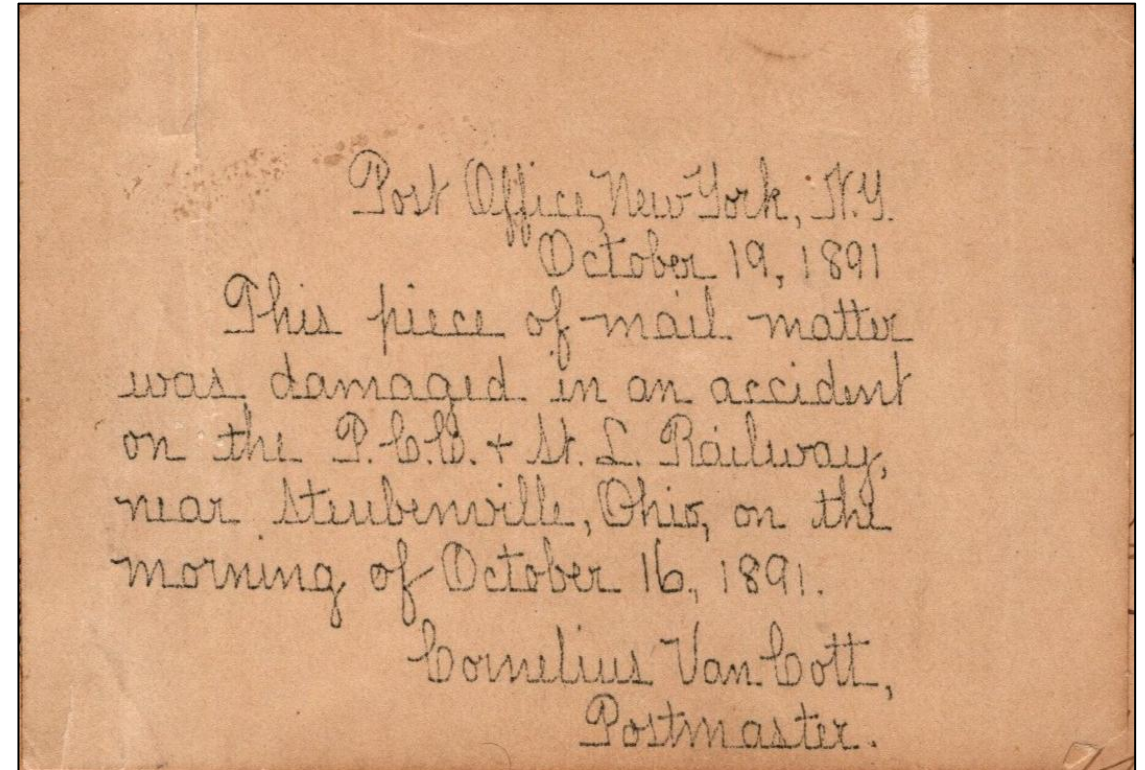 Post Office, New York, N.Y.
October 19, 1891
This piece of mail matter
was damaged in an accident
on the P.C.C. + St. L. Railway,
near Steubenville, Ohio, on the
morning of October 16, 1891.
Cornelius Van Cott,
Postmaster.